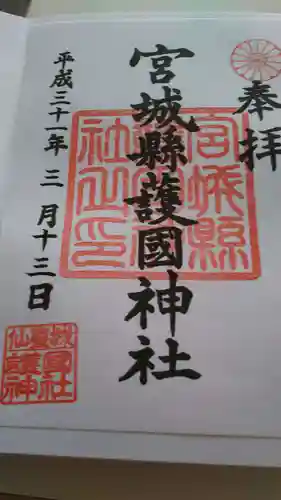 奉拝
宮城縣護國神社
平成三十一年三月十三日
宮城縣護國神社之印